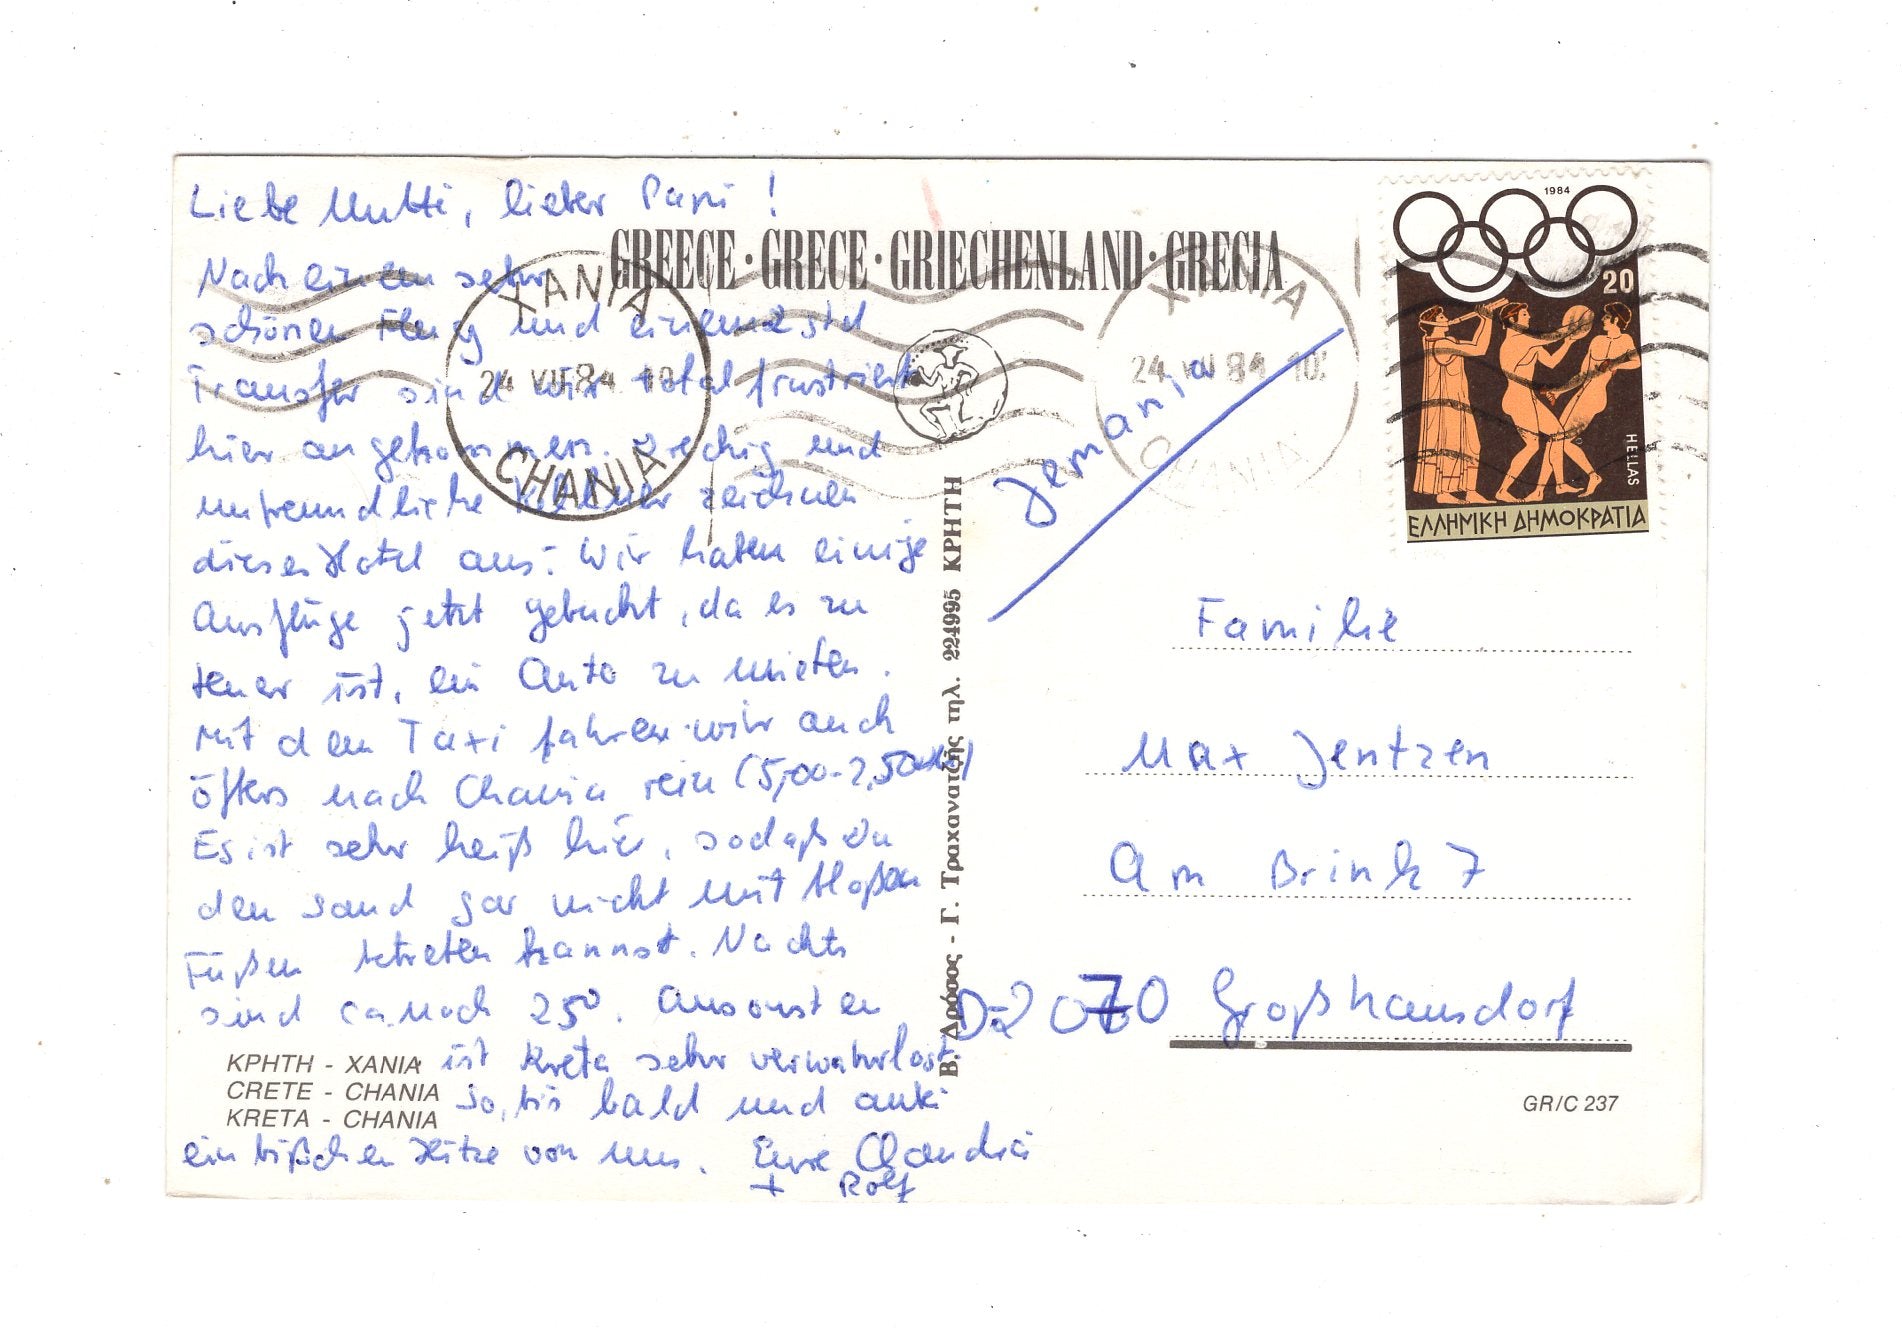 Liebe Mutti, lieber Papi!
Nach einem sehr
schönen Flug und einem 2 std
Transfer sind wir total frustriert
hier angekommen. Dreckig und
unfreundliche Kellner zeichnen
dieses Hotel aus. Wir haben einige
Ausflüge jetzt gebucht, da es zu
teuer ist, ein Auto zu mieten.
Mit dem Taxi fahren wir auch
öfters nach Chania rein (5,00-2,50
Es ist sehr heiß hier, sodaß Du
den Sand gar nicht mit bloßen
Füßen betreten kannst. Nachts
sind ca noch 25°. Ansonsten
ist Kreta sehr verwahrlost
So, bis bald und
ein bißchen Hitze von uns. Eure Claudia
+ Rolf
ΚΡΗΤΗ - ΧΑΝΙΑ
CRETE - CHANIA
KRETA - CHANIA
GREECE · GRECE · GRIECHENLAND · GRECIA
ΧΑΝΙΑ
24 VII 84 10
CHANIA
ΧΑΝΙΑ
24 VII 84 10
CHANIA
Β. Δρόσος - Γ. Τραχανατζής τηλ. 224995 ΚΡΗΤΗ
1984
20
HELLAS
ΕΛΛΗΝΙΚΗ ΔΗΜΟΚΡΑΤΙΑ
Jermania
Familie
Max Jentzen
Am Brink 7
D-2070 Großhansdorf
GR/C 237